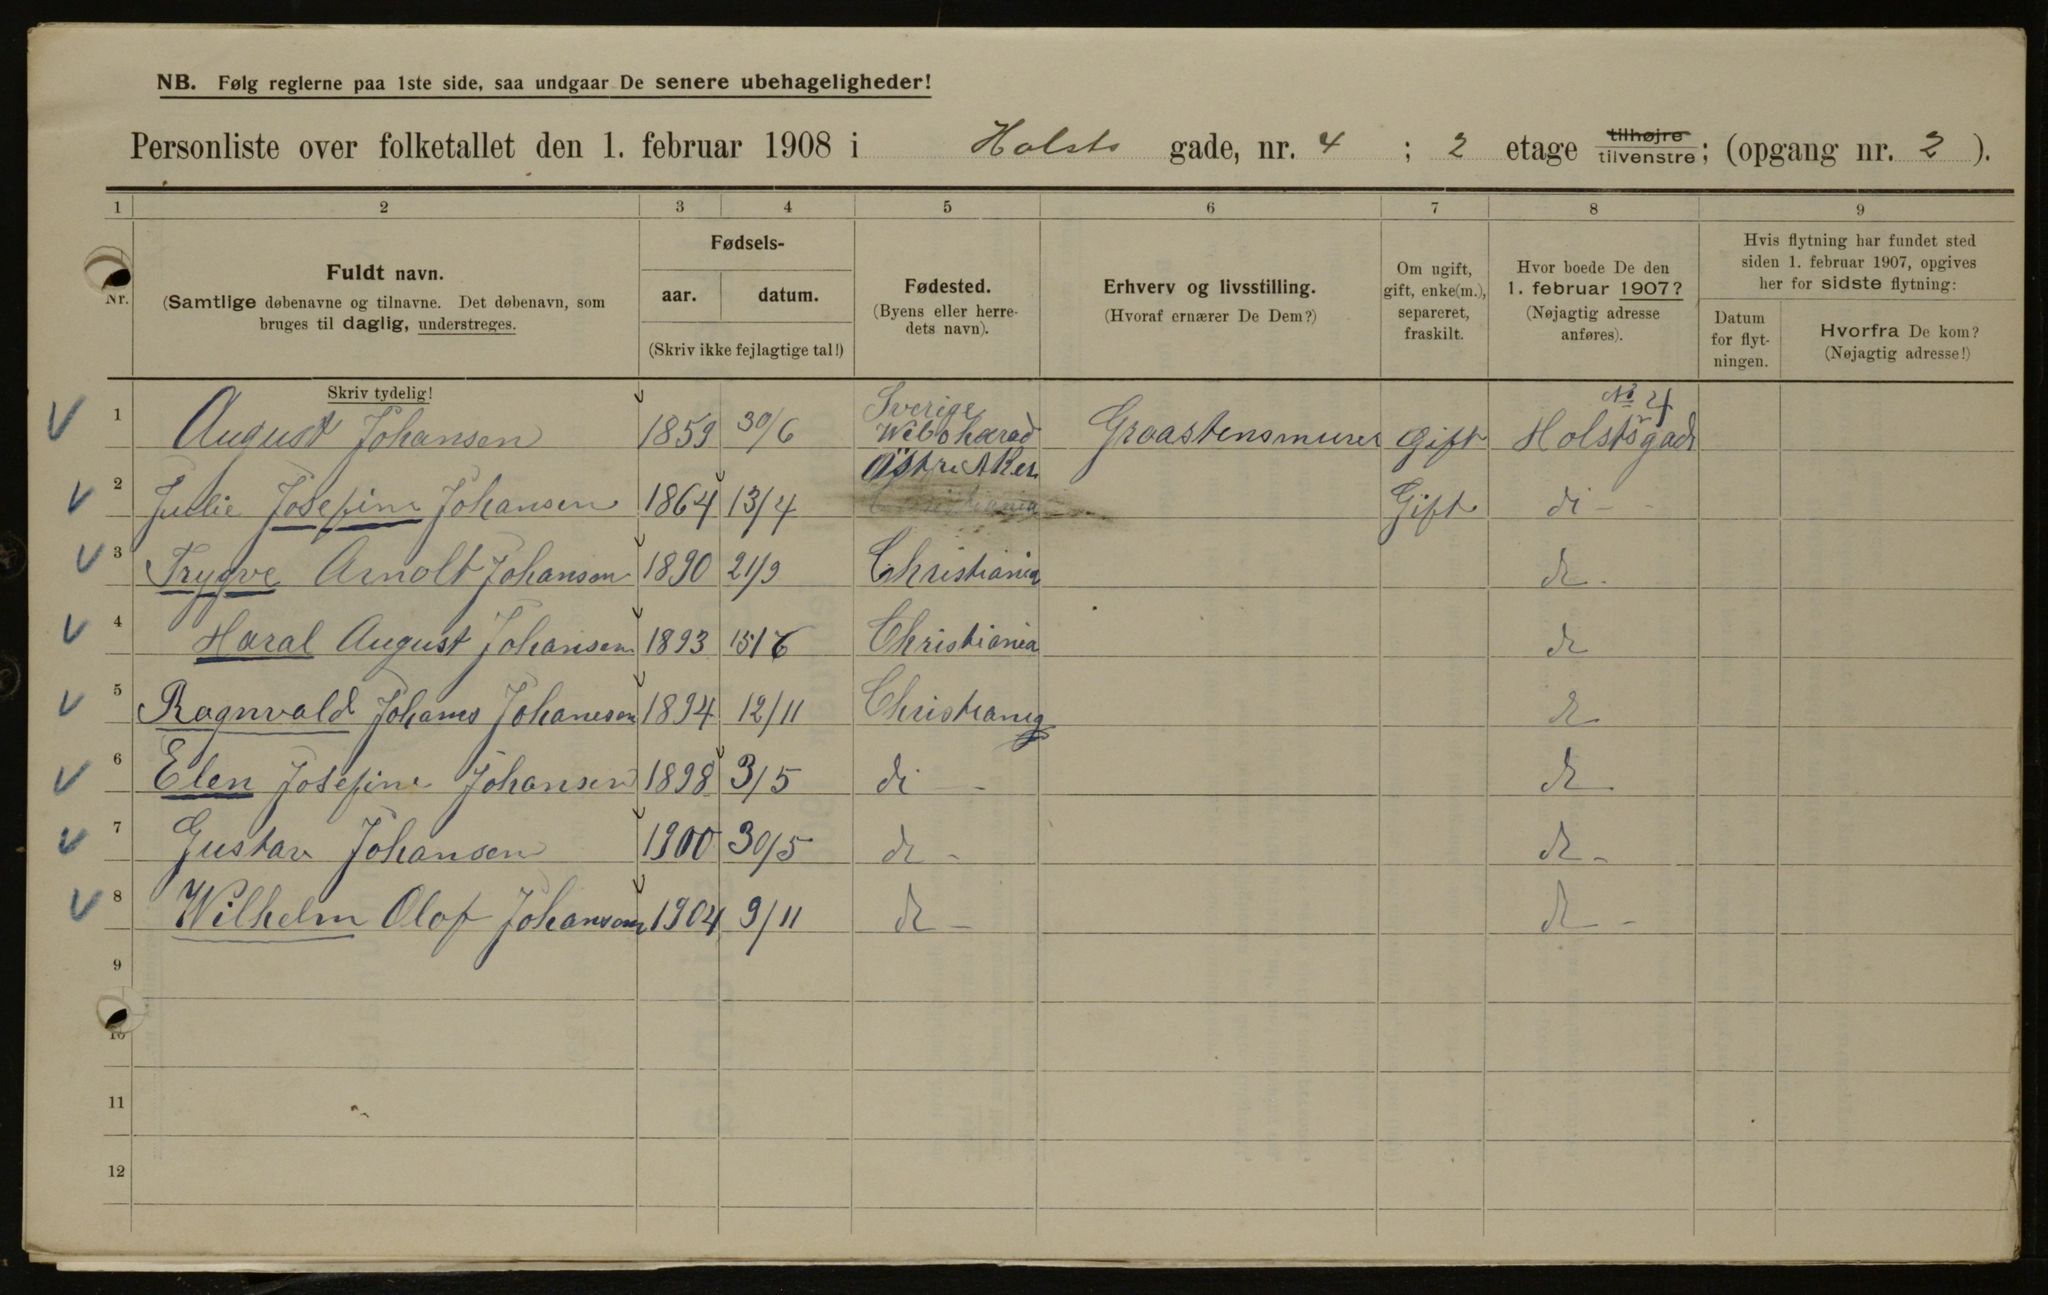 NB. Følg reglerne paa 1ste side, saa undgaar De senere ubehageligheder!
Personliste over folketallet den 1. februar 1908 i Holsts gade, nr. 4 ; 2 etage tilhøjre tilvenstre; (opgang nr. 2 ).
1 2 3 4 5 6 7 8 9
Nr.
Fuldt navn.
(Samtlige døbenavne og tilnavne. Det døbenavn, som
bruges til daglig, understreges.
Skriv tydelig!
Fødsels-
aar. datum.
(Skriv ikke fejlagtige tal!)
Fødested.
(Byens eller herre-
dets navn).
Erhverv og livsstilling.
(Hvoraf ernærer De Dem?)
Om ugift,
gift, enke(m.),
separeret,
fraskilt.
Hvor boede De den
1. februar 1907?
(Nøjagtig adresse
anføres).
Hvis flytning har fundet sted
siden 1. februar 1907, opgives
her for sidste flytning:
Datum
for flyt-
ningen.
Hvorfra De kom?
(Nøjagtig adresse!)
Sverige No 4
1 August Johansen 1859 30/6 Graastensmurer Gift Holstsgade
Østre Aker
2 Julie Josefine Johansen 1864 13/4 Christiania Gift di -
3 Trygve Arnolt Johansen 1890 21/9 Christiania do -
4 Haral August Johansen 1893 15/6 Christiania do
5 Ragnvald Johanes Johansen 1894 12/11 Christiania do
6 Elen Josefine Johansen 1898 3/5 di - do
7 Gustav Johansen 1900 30/5 do - do -
8 Wilhelm Olof Johansen 1904 9/11 do - do -
9
10
11
12